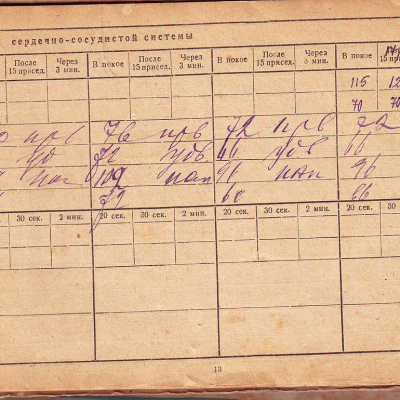 сердечно-сосудистой системы
После 15 присед. Через 3 мин. В покое После 15 присед. Через 3 мин. В покое После 15 присед. Через 3 мин. В покое 15 присед.
115
70 70
прв 76 прв 72 прв 72
удв удв
96 96
72 60 66
30 сек. 2 мин. 20 сек. 30 сек. 2 мин. 20 сек. 30 сек. 2 мин. 20 сек. 30 сек.
13